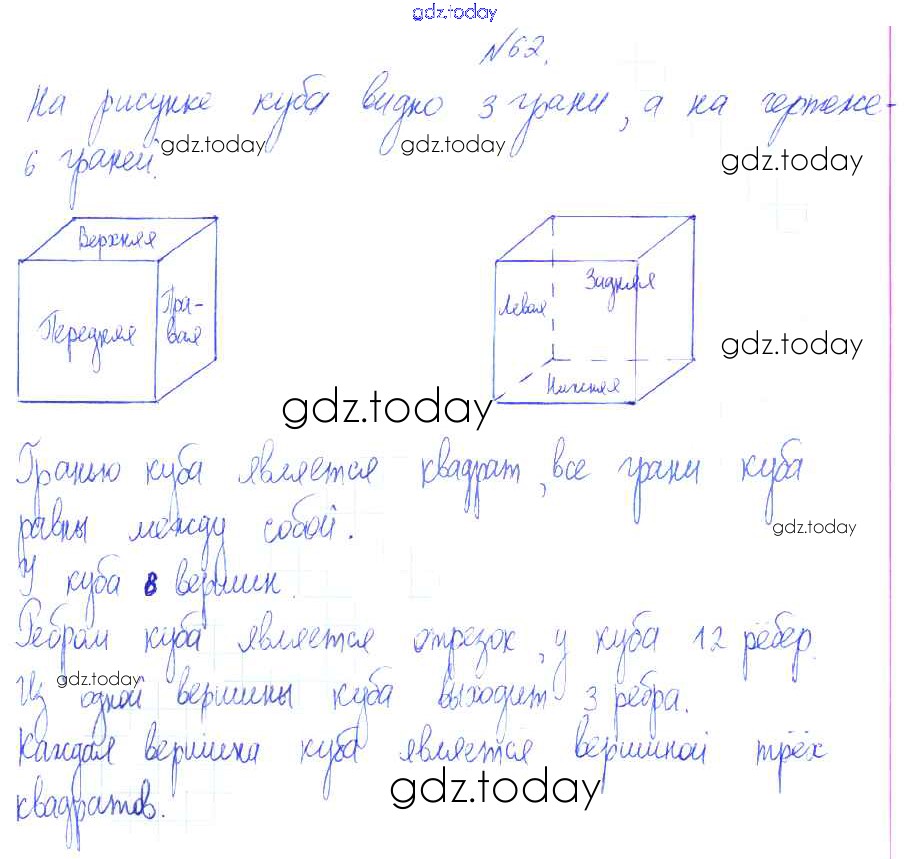 gdz.today
№62.
На рисунке куба видно 3 грани, а на чертеже -
6 граней.
gdz.today gdz.today gdz.today
Верхняя
Задняя
Пра-
Левая
Передняя
вая
gdz.today
Нижняя
gdz.today
Гранью куба является квадрат, все грани куба
равны между собой.
gdz.today
У куба 8 вершин.
Ребром куба является отрезок, у куба 12 рёбер.
gdz.today
Из одной вершины куба выходит 3 ребра.
Каждая вершина куба является вершиной трёх
gdz.today
квадратов.